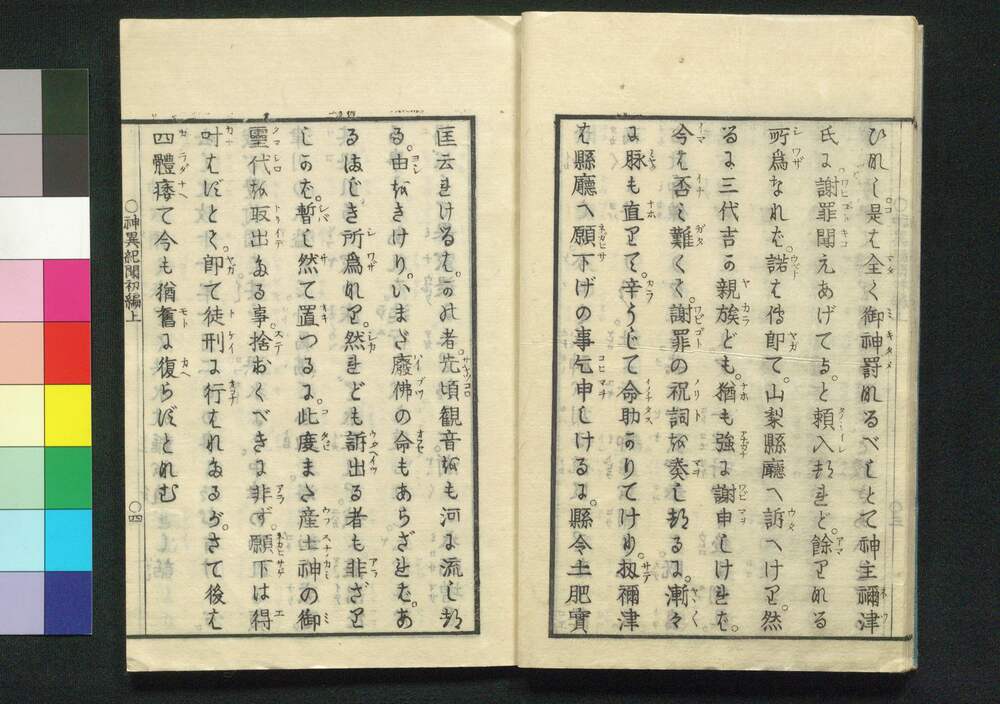 ひれし是は全く御神罰なるべしとて神主禰津
氏に謝罪聞えあげてよと頼入たれど。餘りなる
所爲なれば。諾はず即て。山梨縣廳へ訴へけり。然
るに三代吉の親族ども。猶も強に謝申しければ。
今は否み難くて。謝罪の祝詞を奏したるに。漸々
に脉も直りて。辛うじて命助かりてけり。扨禰津
は縣廳へ願下げの事乞申しけるに。縣令土肥實
匡云れけるは。かの者。先頃観音をも河に流した
る。由をきけり。いまだ廢佛の命もあらざれば。あ
るまじき所爲なり。然れども訴出る者も非ざり
しかば。暫し然て置つるに。此度また産土神の御
霊代を取出たる事。捨おくべきに非ず。願下は得
叶はずとて。即て徒刑に行はれたるが。さて後は
四體痿て今も猶舊に復らずとなむ
○神異紀聞初編上
○四